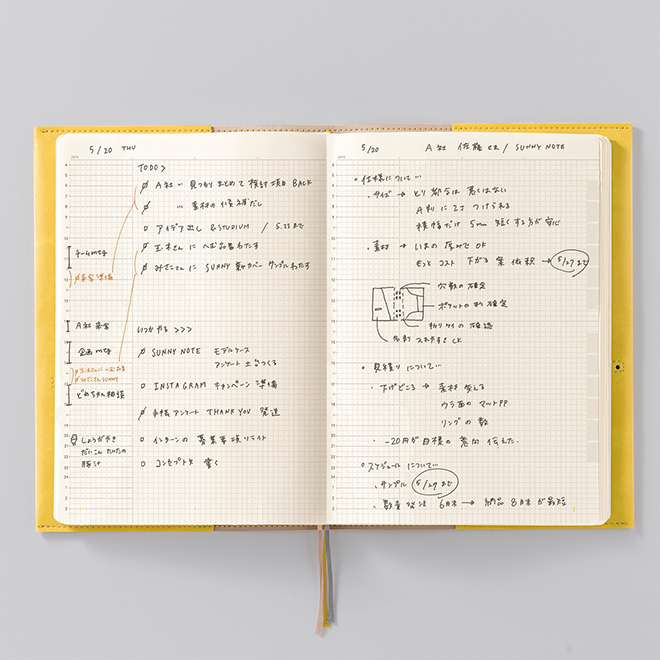 5/20 THU
TODO>
A社 〃 見つもりまとめて 検討項目 BACK
〃 素材の候補だし
アイデア出し &STUDIUM / 5.23まで
玉木さんに へお品書わたす
みさこさんに SUNNY 製カバー サンプルわたす
チームmtg
来客準備
A社来客
企画mtg
どめちゃん相談
しょうがやき
だいこん
豚汁
いつかやる >>>
SUNNY NOTE モデルケース
アンケート
INSTAGRAM キャンペーン 準備
手帳アンケート THANK YOU 発送
インターンの 募集事項 リライト
コンセプトを 書く
5/20 A社 佐藤さん / SUNNY NOTE
仕様について…
・サイズ → とり都合は悪くはない
A判に 2コ つけられる
横幅だけ 5mm 短くする方が安心
・素材 → いまの厚みで OK
もっと コスト 下がる 集 → 5/27まで
穴数の確定
ポケットの形 確定
折りケイの確認
名刺
見積りについて…
・下げどころ → 素材変える
ウラ面の マットPP
リングの数
・-20円が目標の意向 伝えた.
スケジュールについて…
・サンプル 5/29まで
・数量発注 6月末 → 納品 8月末が最短